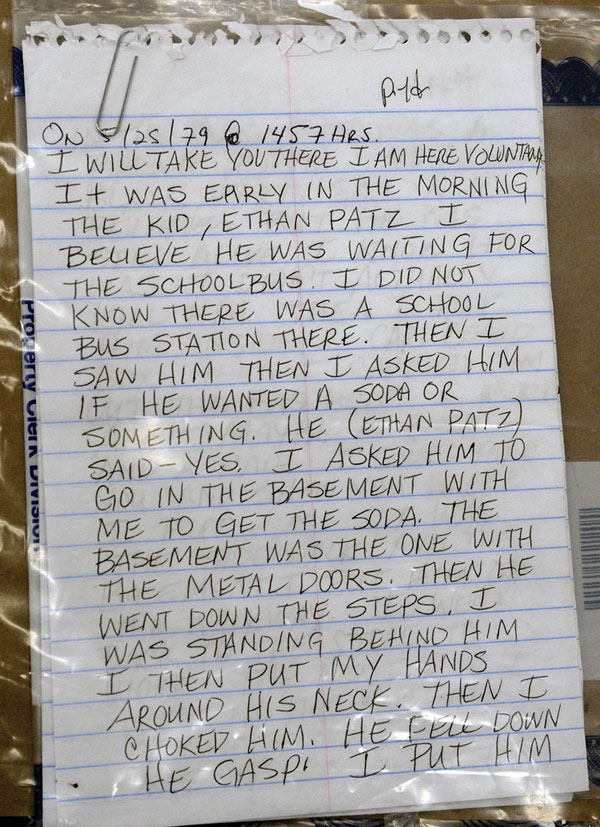 ON 5/25/79 @ 1457 HRS.
I WILL TAKE YOU THERE I AM HERE
It WAS EARLY IN THE MORNING
THE KID, ETHAN PATZ I
BELIEVE HE WAS WAITING FOR
THE SCHOOLBUS. I DID NOT
KNOW THERE WAS A SCHOOL
BUS STATION THERE. THEN I
SAW HIM THEN I ASKED HIM
IF HE WANTED A SODA OR
SOMETHING. HE (ETHAN PATZ)
SAID - YES. I ASKED HIM TO
GO IN THE BASEMENT WITH
ME TO GET THE SODA. THE
BASEMENT WAS THE ONE WITH
THE METAL DOORS. THEN HE
WENT DOWN THE STEPS. I
WAS STANDING BEHIND HIM
I THEN PUT MY HANDS
AROUND HIS NECK. THEN I
CHOKED HIM. HE FELL DOWN
HE GASP. I PUT HIM
Property Clerk Division